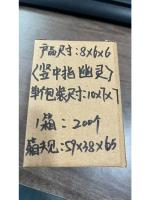 产品尺寸：8x6x6
〈竖中指幽灵〉
单包装尺寸：10x7x7
1箱：200个
箱规：59x38x65